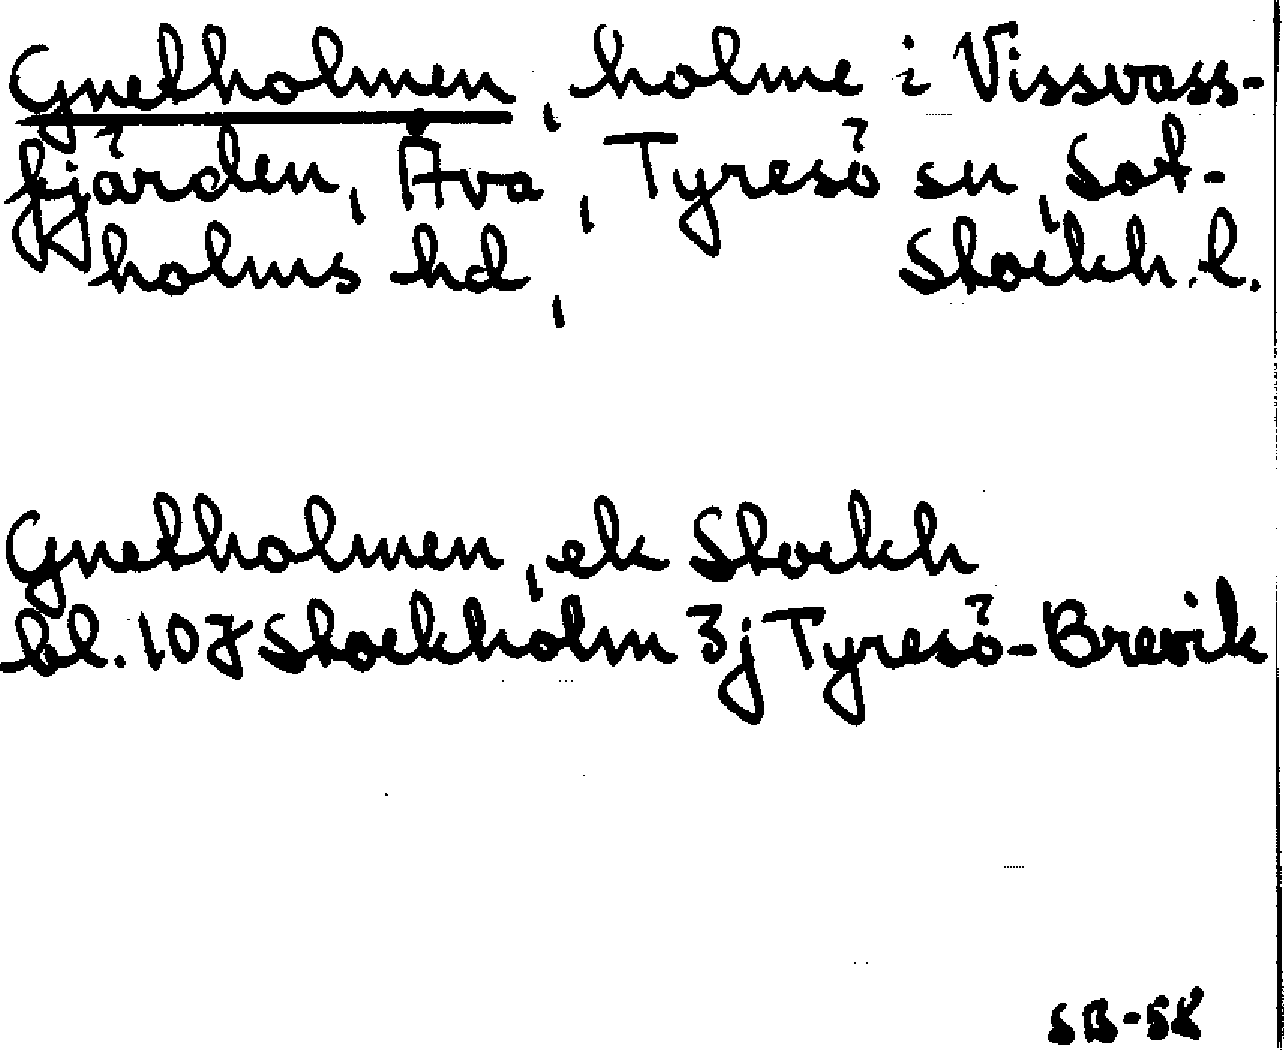 Gnetholmen, holme i Vissvass-
fjärden, Åva, Tyresö sn, Sot-
holms hd, Stockh. l.
Gnetholmen, ek Stockh
bl. 107 Stockholm 3j Tyresö-Brevik
SB-58